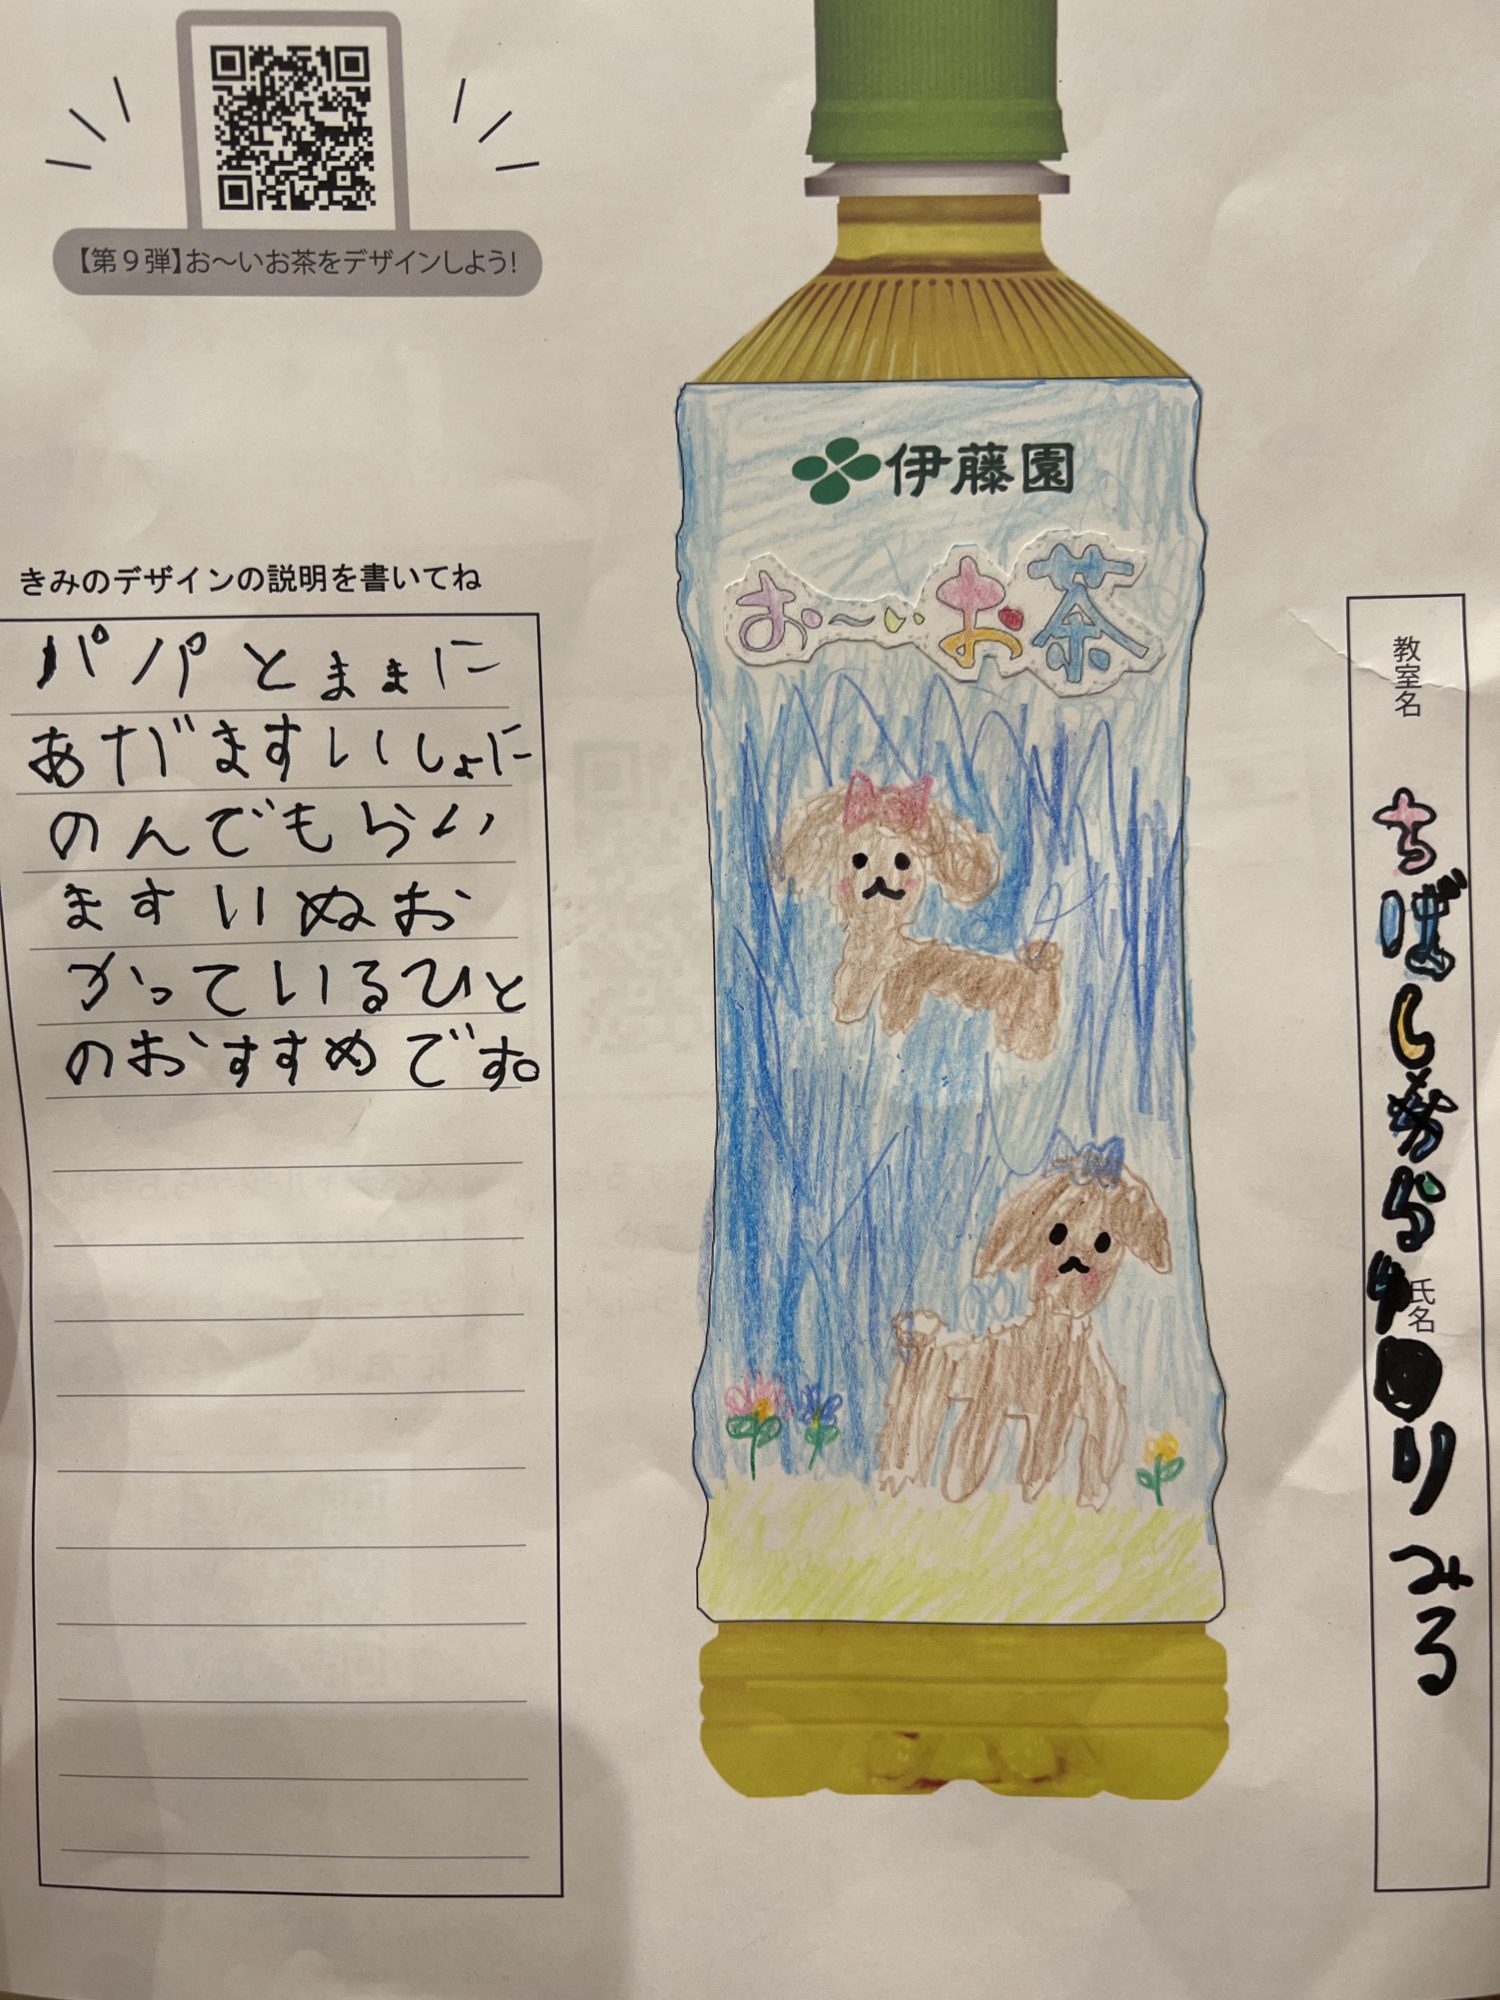 【第９弾】お～いお茶をデザインしよう!
伊藤園
お～いお茶
きみのデザインの説明を書いてね
パパとままに
あげますいしょに
のんでもらい
ますいぬお
かっているひと
のおすすめです。
教室名
氏名
みる